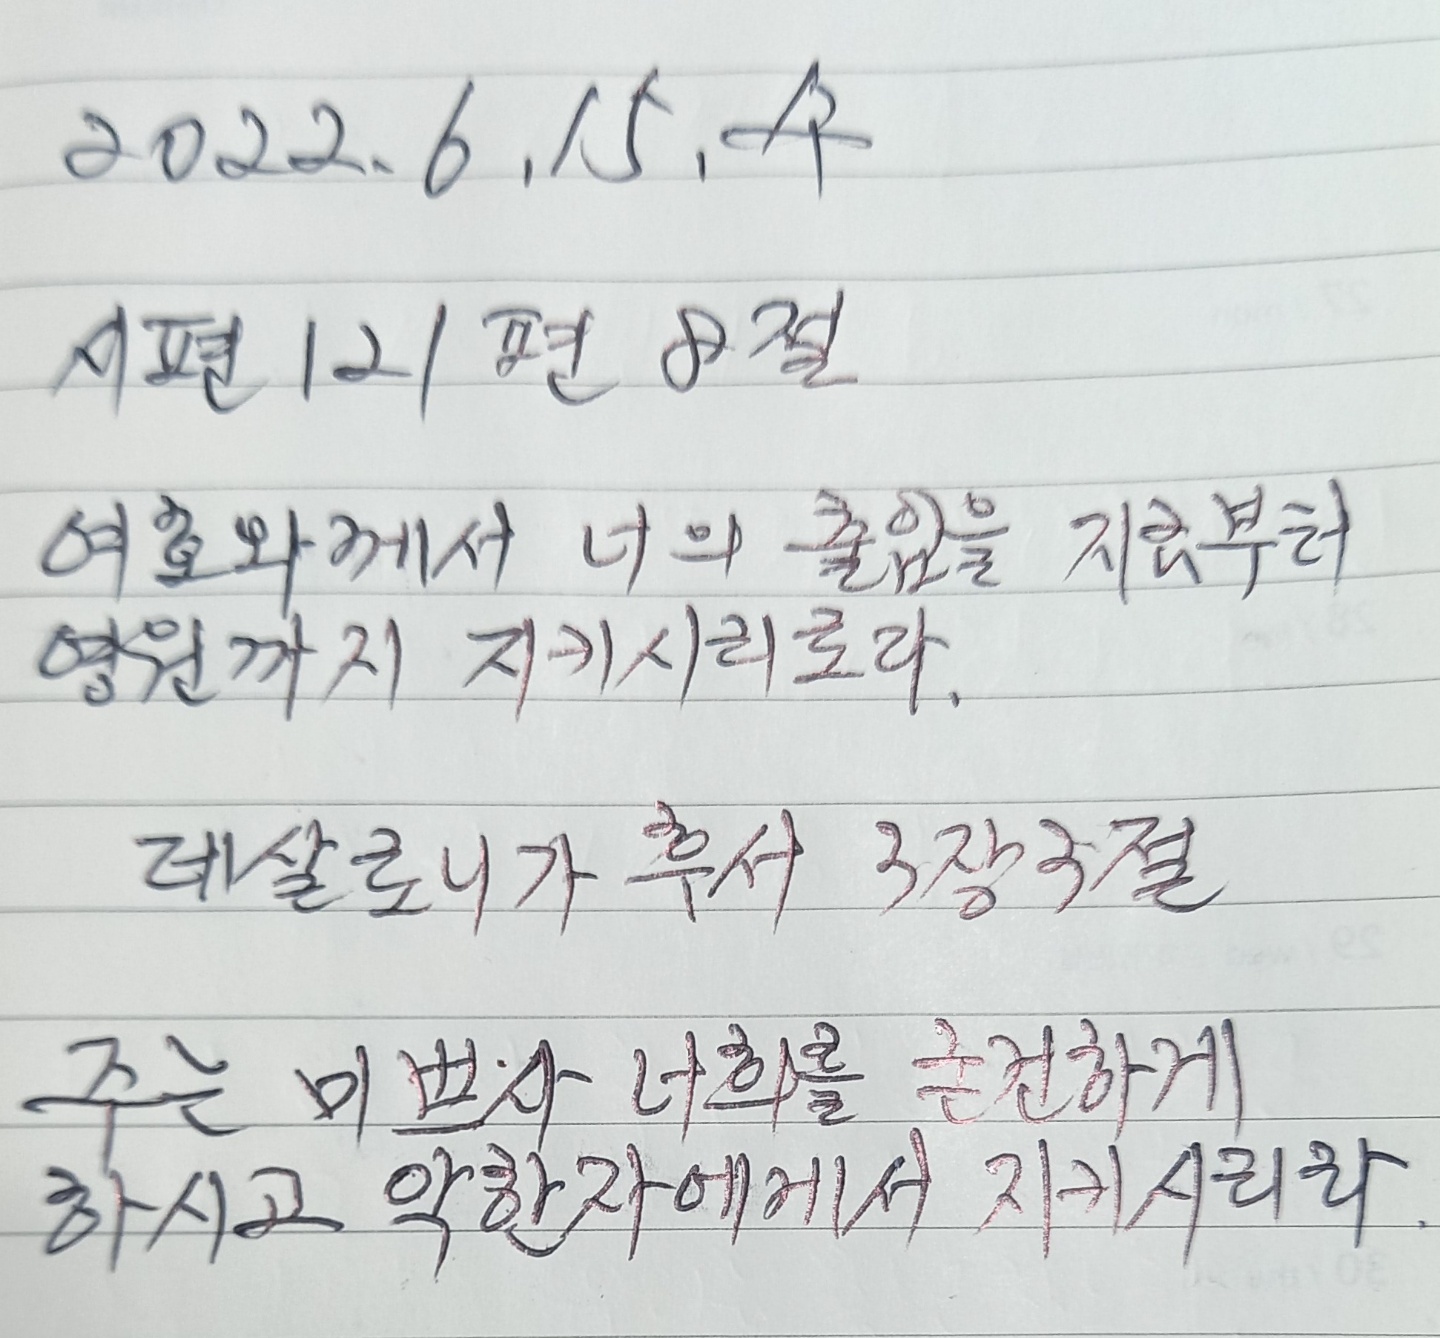 2022. 6. 15. 수
시편 121편 8절
여호와께서 너의 출입을 지금부터
영원까지 지키시리로다.
데살로니가 후서 3장 3절
주는 미쁘사 너희를 굳건하게
하시고 악한자에게서 지키시리라.